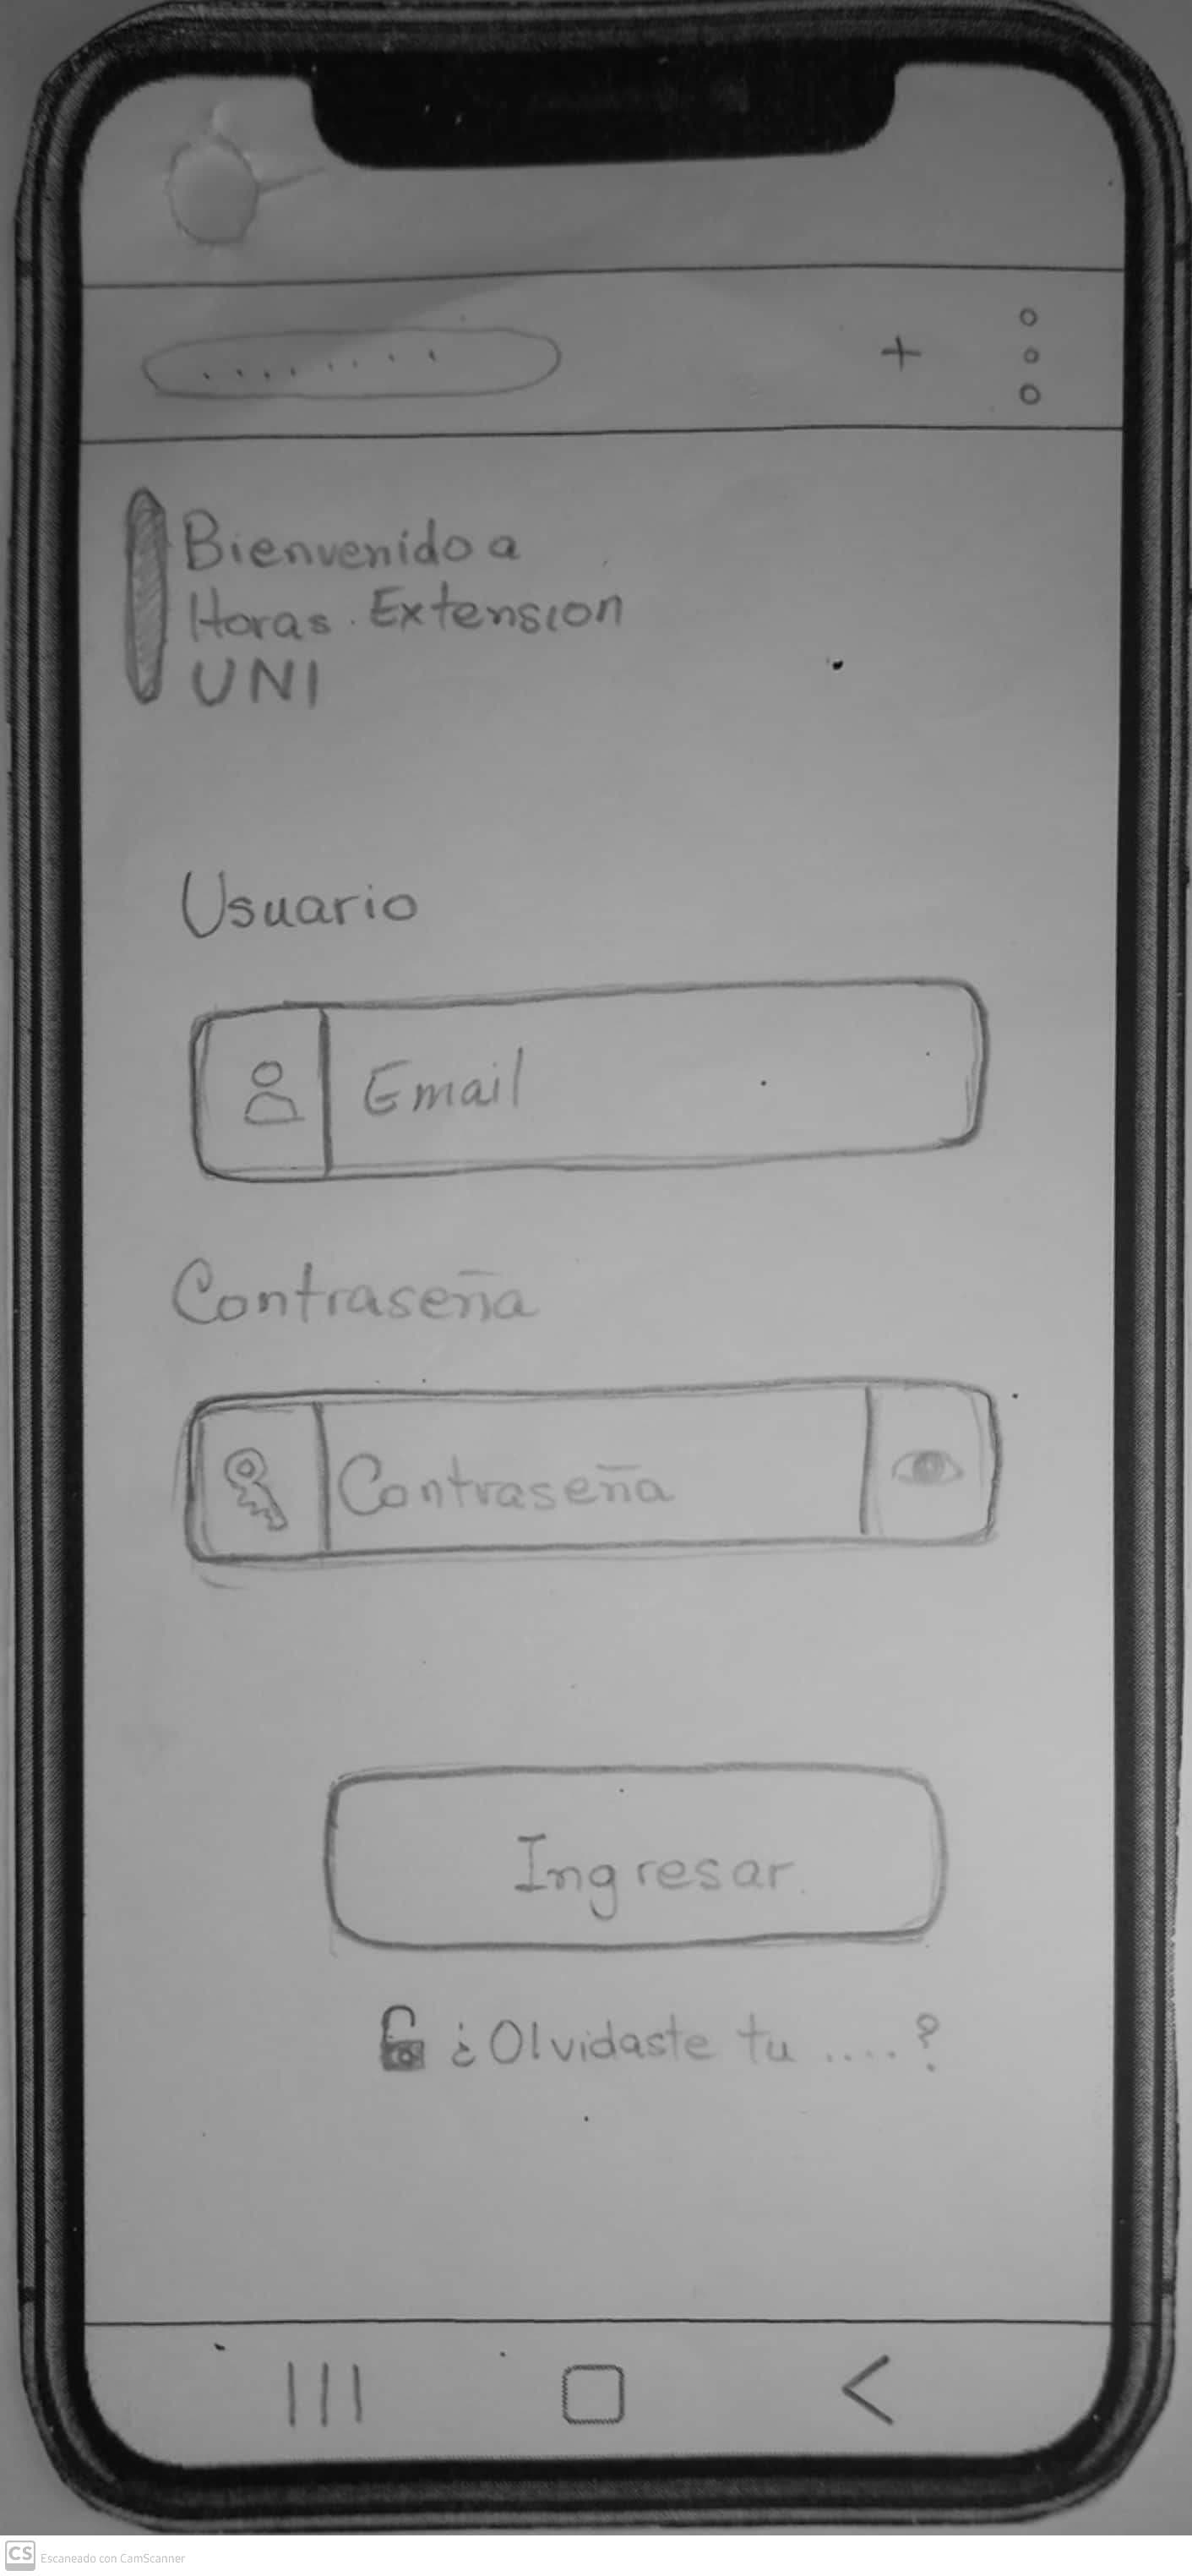 Bienvenido a
Horas Extension
UNI
Usuario
Email
Contraseña
Contraseña
Ingresar
¿Olvidaste tu ....?
CS Escaneado con CamScanner